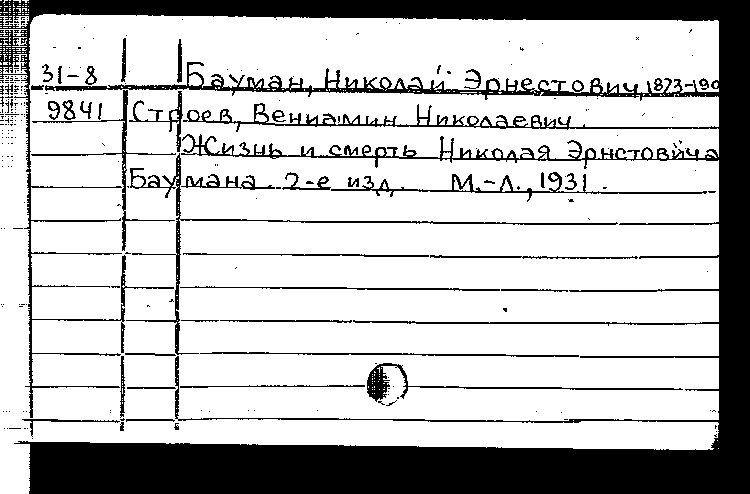 31-8 Бауман, Николай Эрнестович, 1873-190
9841 Строев, Вениамин Николаевич.
Жизнь и смерть Николая Эрнстовича
Баумана. 2-е изд. М.-Л., 1931.